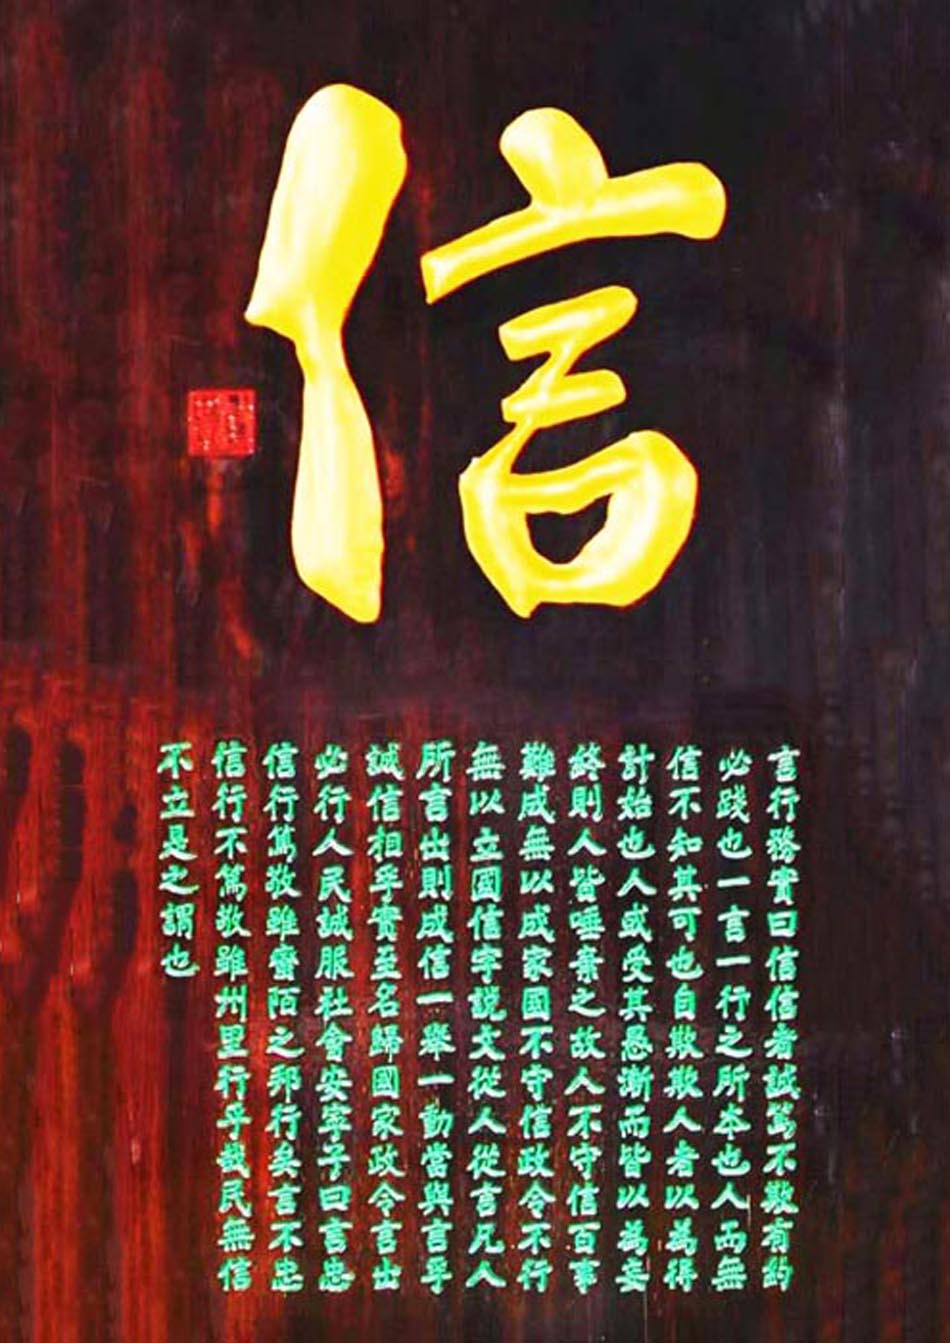 信
言行務實曰信信者誠篤不欺有約
必踐也一言一行之所本也人而無
信不知其可也自欺欺人者以為得
計始也人或受其愚漸而皆以為妄
終則人皆唾棄之故人不守信百事
難成無以成家國不守信政令不行
無以立國信字説文從人從言凡人
所言出則成信一舉一動當與言孚
誠信相孚實至名歸國家政令言出
必行人民誠服社會安寧子曰言忠
信行篤敬雖蠻陌之邦行矣言不忠
信行不篤敬雖州里行乎哉民無信
不立是之謂也